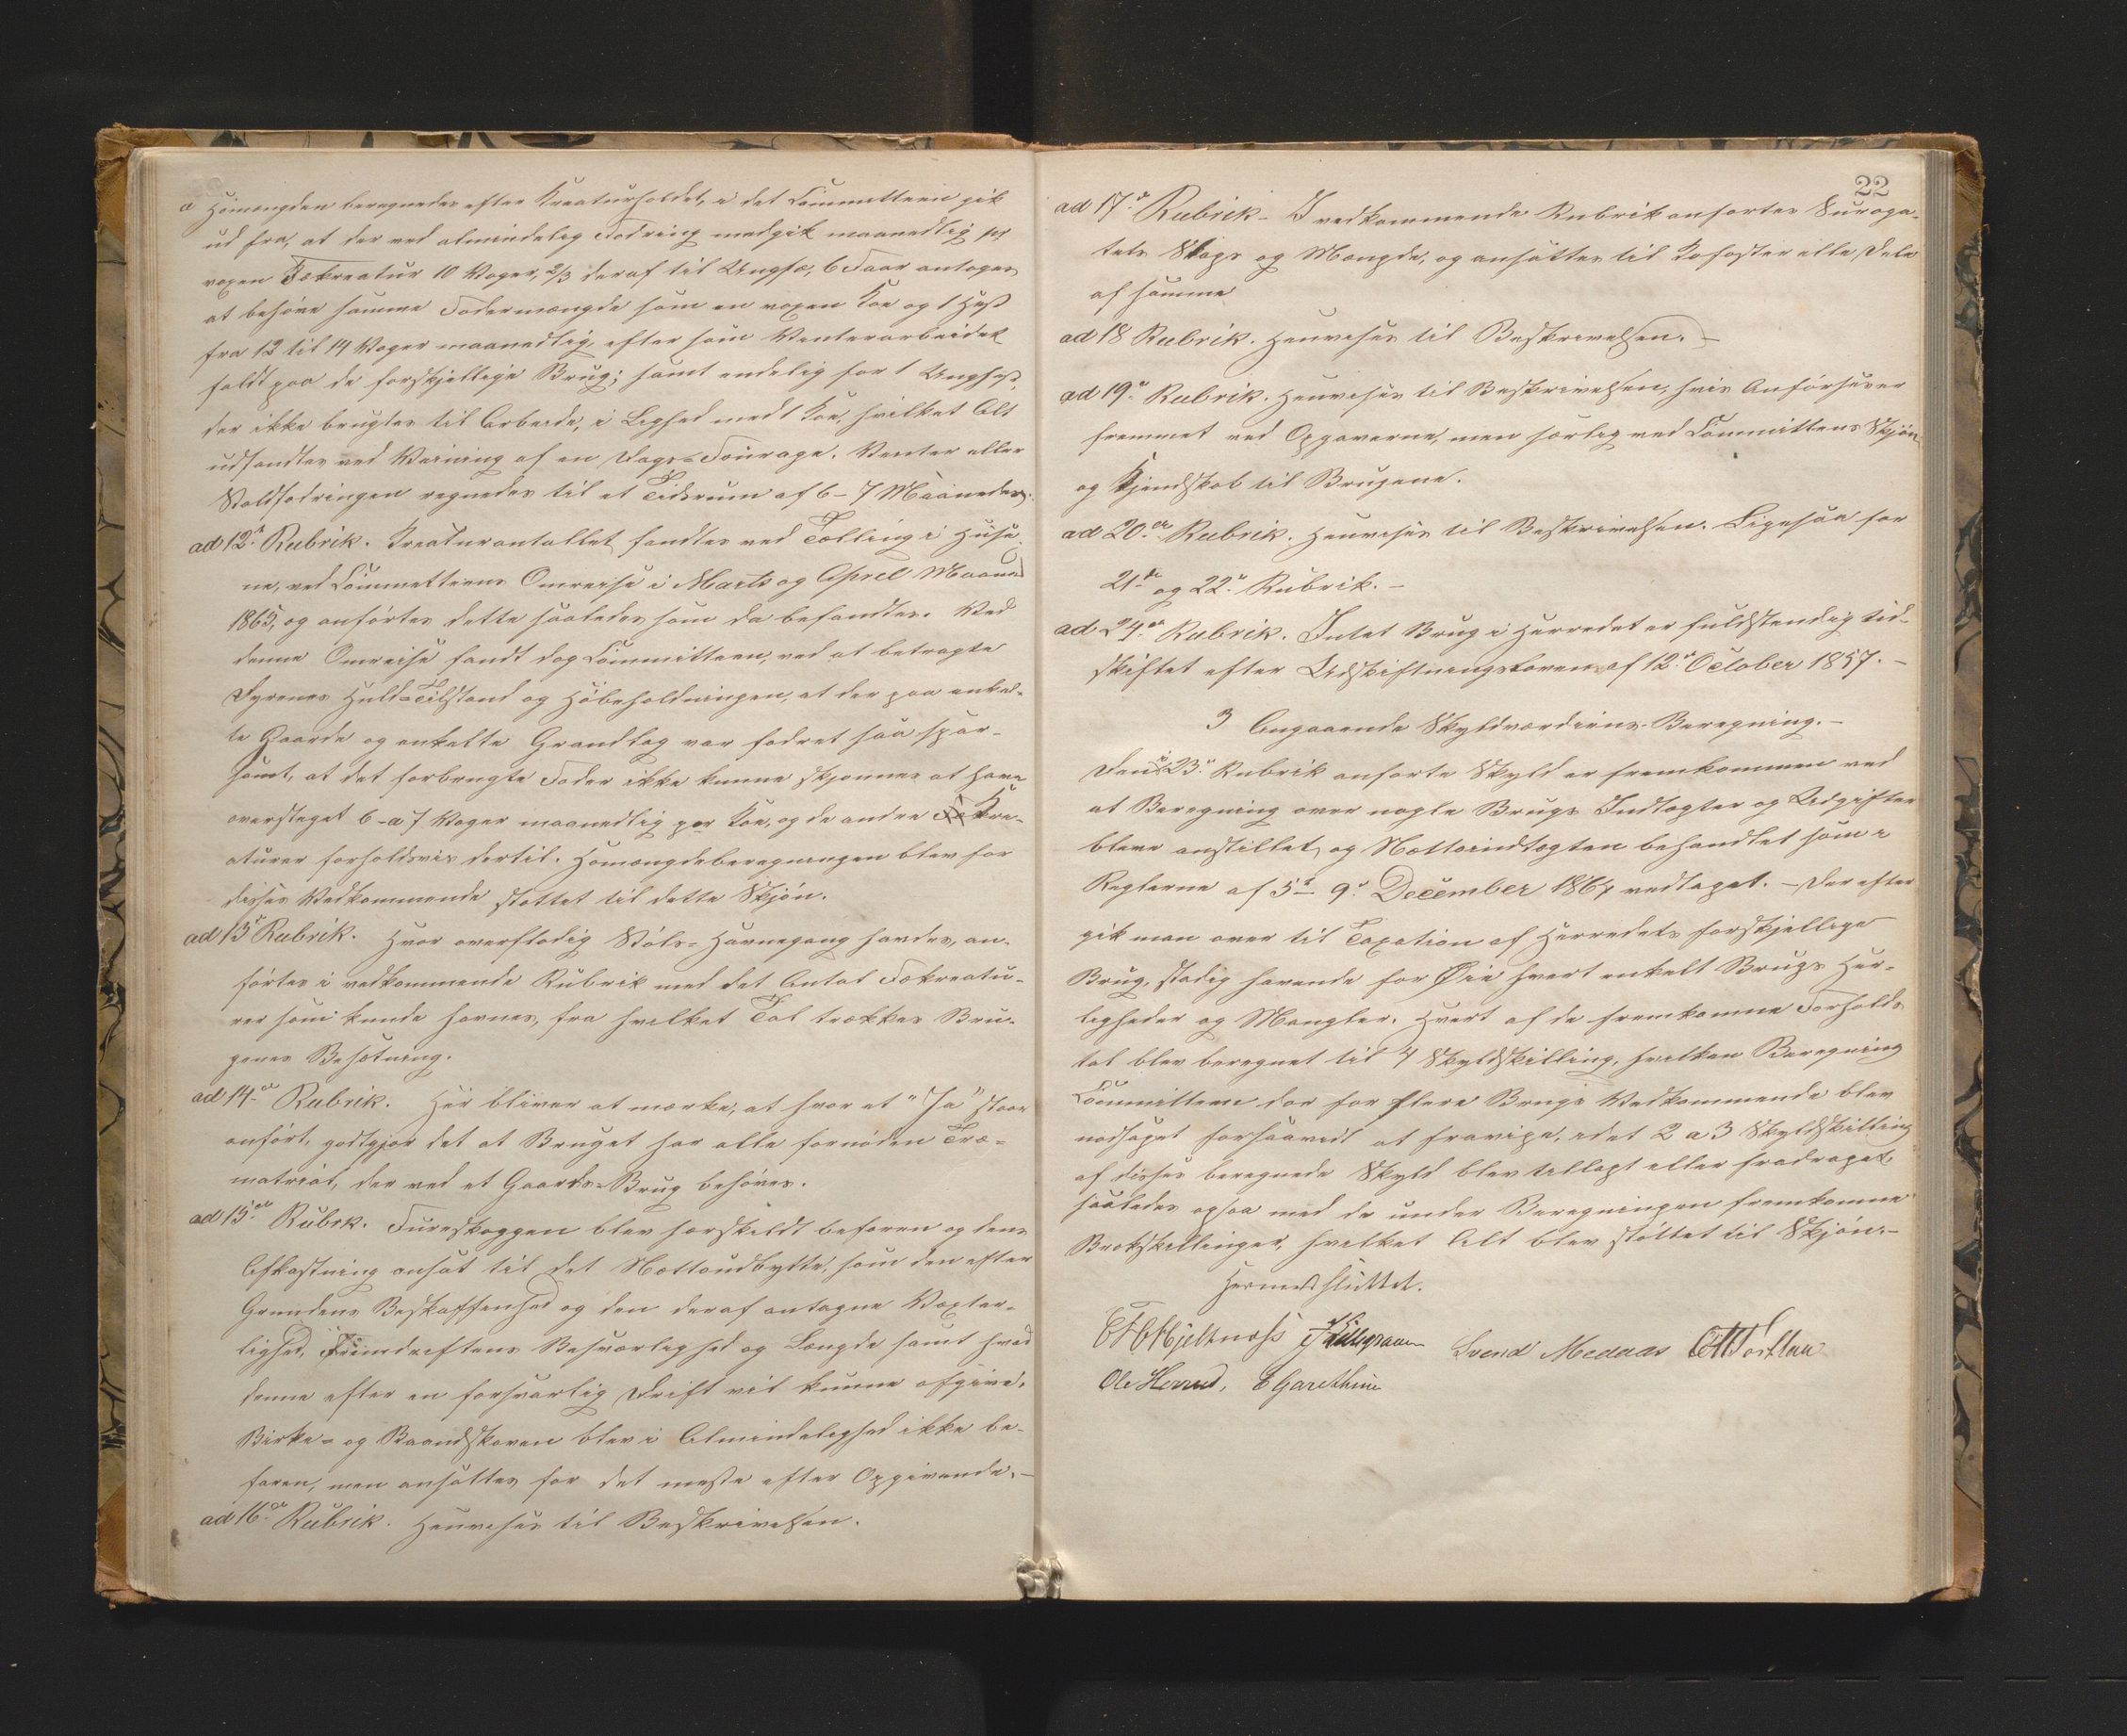 a Hömængden beregnedes efter Kreaturholdet, i det Committeen gik
ud fra, at der ved almindelig Fodring medgik maanedlig pr
voxen Fækreatur 10 Voger, 2/3 deraf til Ungfæ, 6 Faar antoges
at behöve samme Fodermængde som en voxen Koe og 1 Hest
fra 12 til 14 Voger maanedlig, efter som Venterarbeidet
faldt paa de forskjellige Brug; samt endelig for 1 Unghest,
der ikke brugtes til Arbeide, i Lighed med 1 Koe, hvilket Alt
udfandtes ved Veining af en Dags-Fourage. Venter eller
Stald fodringen regnedes til et Tidsrum af 6-7 Maaneder.
ad 12te Rubrik. Kreaturantallet fandtes ved Tælling i Huse-
ne, ved Committeens Omreise i Marts og April Maaned
1865, og anförtes dette saaledes som da befandtes. Ved
denne Omreise fandt dog Committeen, ved at betragte
Dyrenes Huld-Tilstand og Höbeholdningen, at der paa enkel-
te Gaarde og enkelte Grandlag var fodret saa spar-
somt, at det forbrugte Foder ikke kunne skjönnes at have
oversteget 6 a 7 Voger maanedlig per Koe, og de andre Kre-
aturer forholdsvis dertil. Hömængdeberegningen blev for
disses Vedkommende støttet til dette Skjön.
ad 13de Rubrik. Hvor overflødig Støls-Havnegang havdes, an-
førtes i vedkommende Rubrik med det Antal Fækreatu-
rer som kunde havnes, fra hvilket Tal trækkes Bru-
genes Besætning.
ad 14de Rubrik. Her bliver at mærke, at hvor et "Ja" staar
anfört, godtgjør det at Bruget har alle fornöden Træ-
matrial, der ved et Gaards-Brug behöves.
ad 15de Rubrk. Fureskoggen blev særskildt befaren og dens
Afkastning ansat til det Nettoudbytte, som den efter
Grundens Beskaffenhed og den deraf antagne Voxter-
lighed, Fremdriftens Besværlighed og Længde samt hvad
denne efter en forsvarlig Drift vil kunne afgive.
Birke- og Baandskoven blev i Almindelighed ikke be-
faren, men ansattes for det meste efter Opgivende.-
ad 16de Rubrik. Henvises til Beskrivelsen.
22
ad 17de Rubrik - I vedkommende Rubrik anførtes Suroga-
tets Slags og Mængde, og ansattes til Kofoster eller Dele
af samme
ad 18 Rubrik. Henvises til Beskrivelsen. -
ad 19de Rubrik. Henvises til Beskrivelsen, hvis Anförhsler
fremmet ved Opgaverne, men særlig ved Committens Skjön
og Kjendskab til Brugene.
ad 20de Rubrik. Henvises til Beskrivelsen. Ligesaa for
21de og 22de Rubrik. -
ad 24de Rubrik. Intet Brug i Herredet er fuldstendig ud-
skiftet efter Udskiftningsloven af 12te October 1857. -
3 Angaaende Skyldværdiens-Beregning. -
Den i 23de Rubrik anførte Skyld er fremkommen ved
at Beregning over nogle Brugs Indtægter og Udgifter
bleve anstillet, og Nettoindtægten behandlet som i
Reglerne af 5te 9de December 1864 vedtaget. - Derefter
gik man over til Taxation af Herredets forskjellige
Brug, stadig havende for Øie hvert enkelt Brugs Her-
ligheder og Mangler. Hvert af de fremkomne Forholds
tal blev beregnet til 4 Skyldskilling, hvilken Beregning
Committeen dog for flere Brugs Vedkommende blev
nødsaget forsaavidt at fravige, idet 2 a 3 Skyldskilling
af disses beregnede Skyld blev tillagt eller fradraget
saaledes ogsaa med de under Beregningen fremkomne
Brøkskillinger, hvilket Alt blev støttet til Skjön. -
Hermed sluttet.
Svend Medaas
Ole Herred,